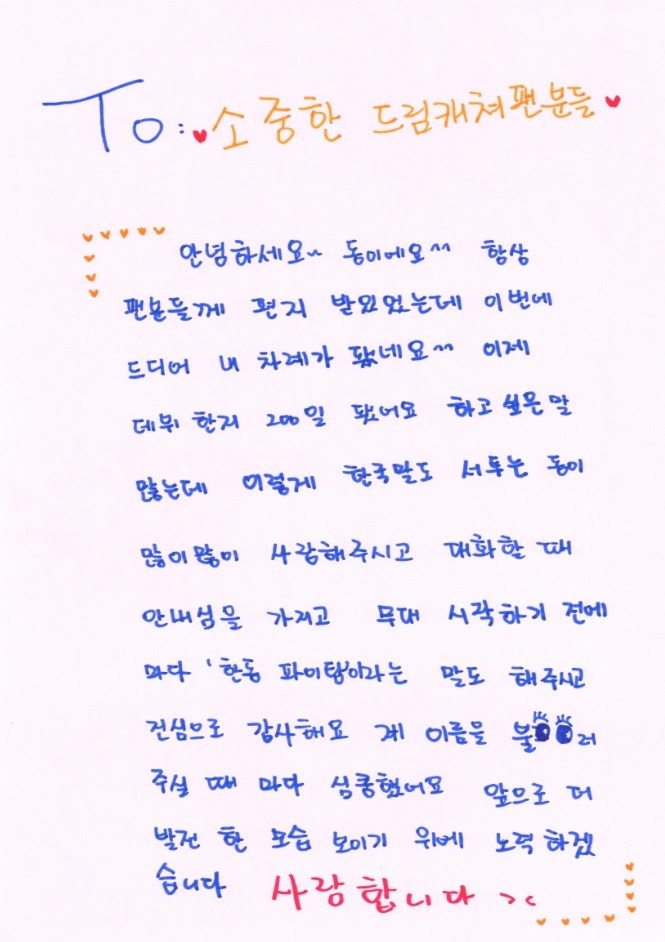 To: 소중한 드림캐쳐팬분들
안녕하세요~ 동이에요^^ 항상
팬분들께 편지 받았었는데 이번에
드디어 내 차례가 됐네요^^ 이제
데뷔 한지 200일 됐어요 하고 싶은 말
많는데 이렇게 한국말도 서투는 동이
많이많이 사랑해주시고 대화할 때
안내심을 가지고 무대 시작하기 전에
마다 '한동 파이팅이라는 말도 해주시고
진심으로 감사해요 제 이름을 불러
주실 때 마다 심쿵했어요 앞으로 더
발전 한 모습 보이기 위에 노력하겠
습니다 사랑합니다 ><